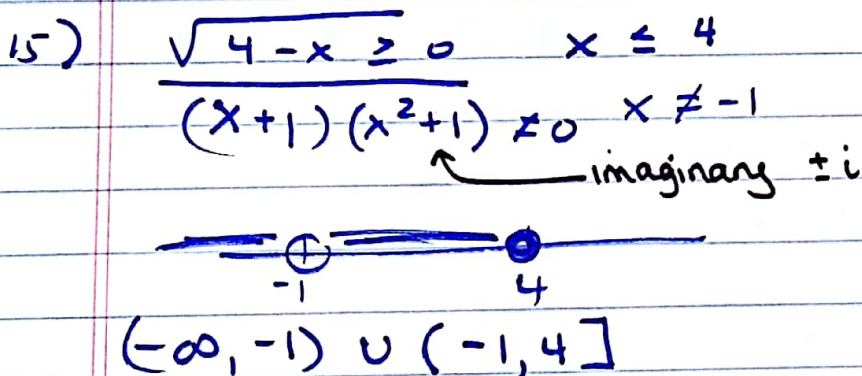 15) √4-x ≥ 0 x ≤ 4
(x+1)(x²+1) ≠0 x ≠ -1
imaginary ±i
-1 4
(-∞, -1) ∪ (-1, 4]